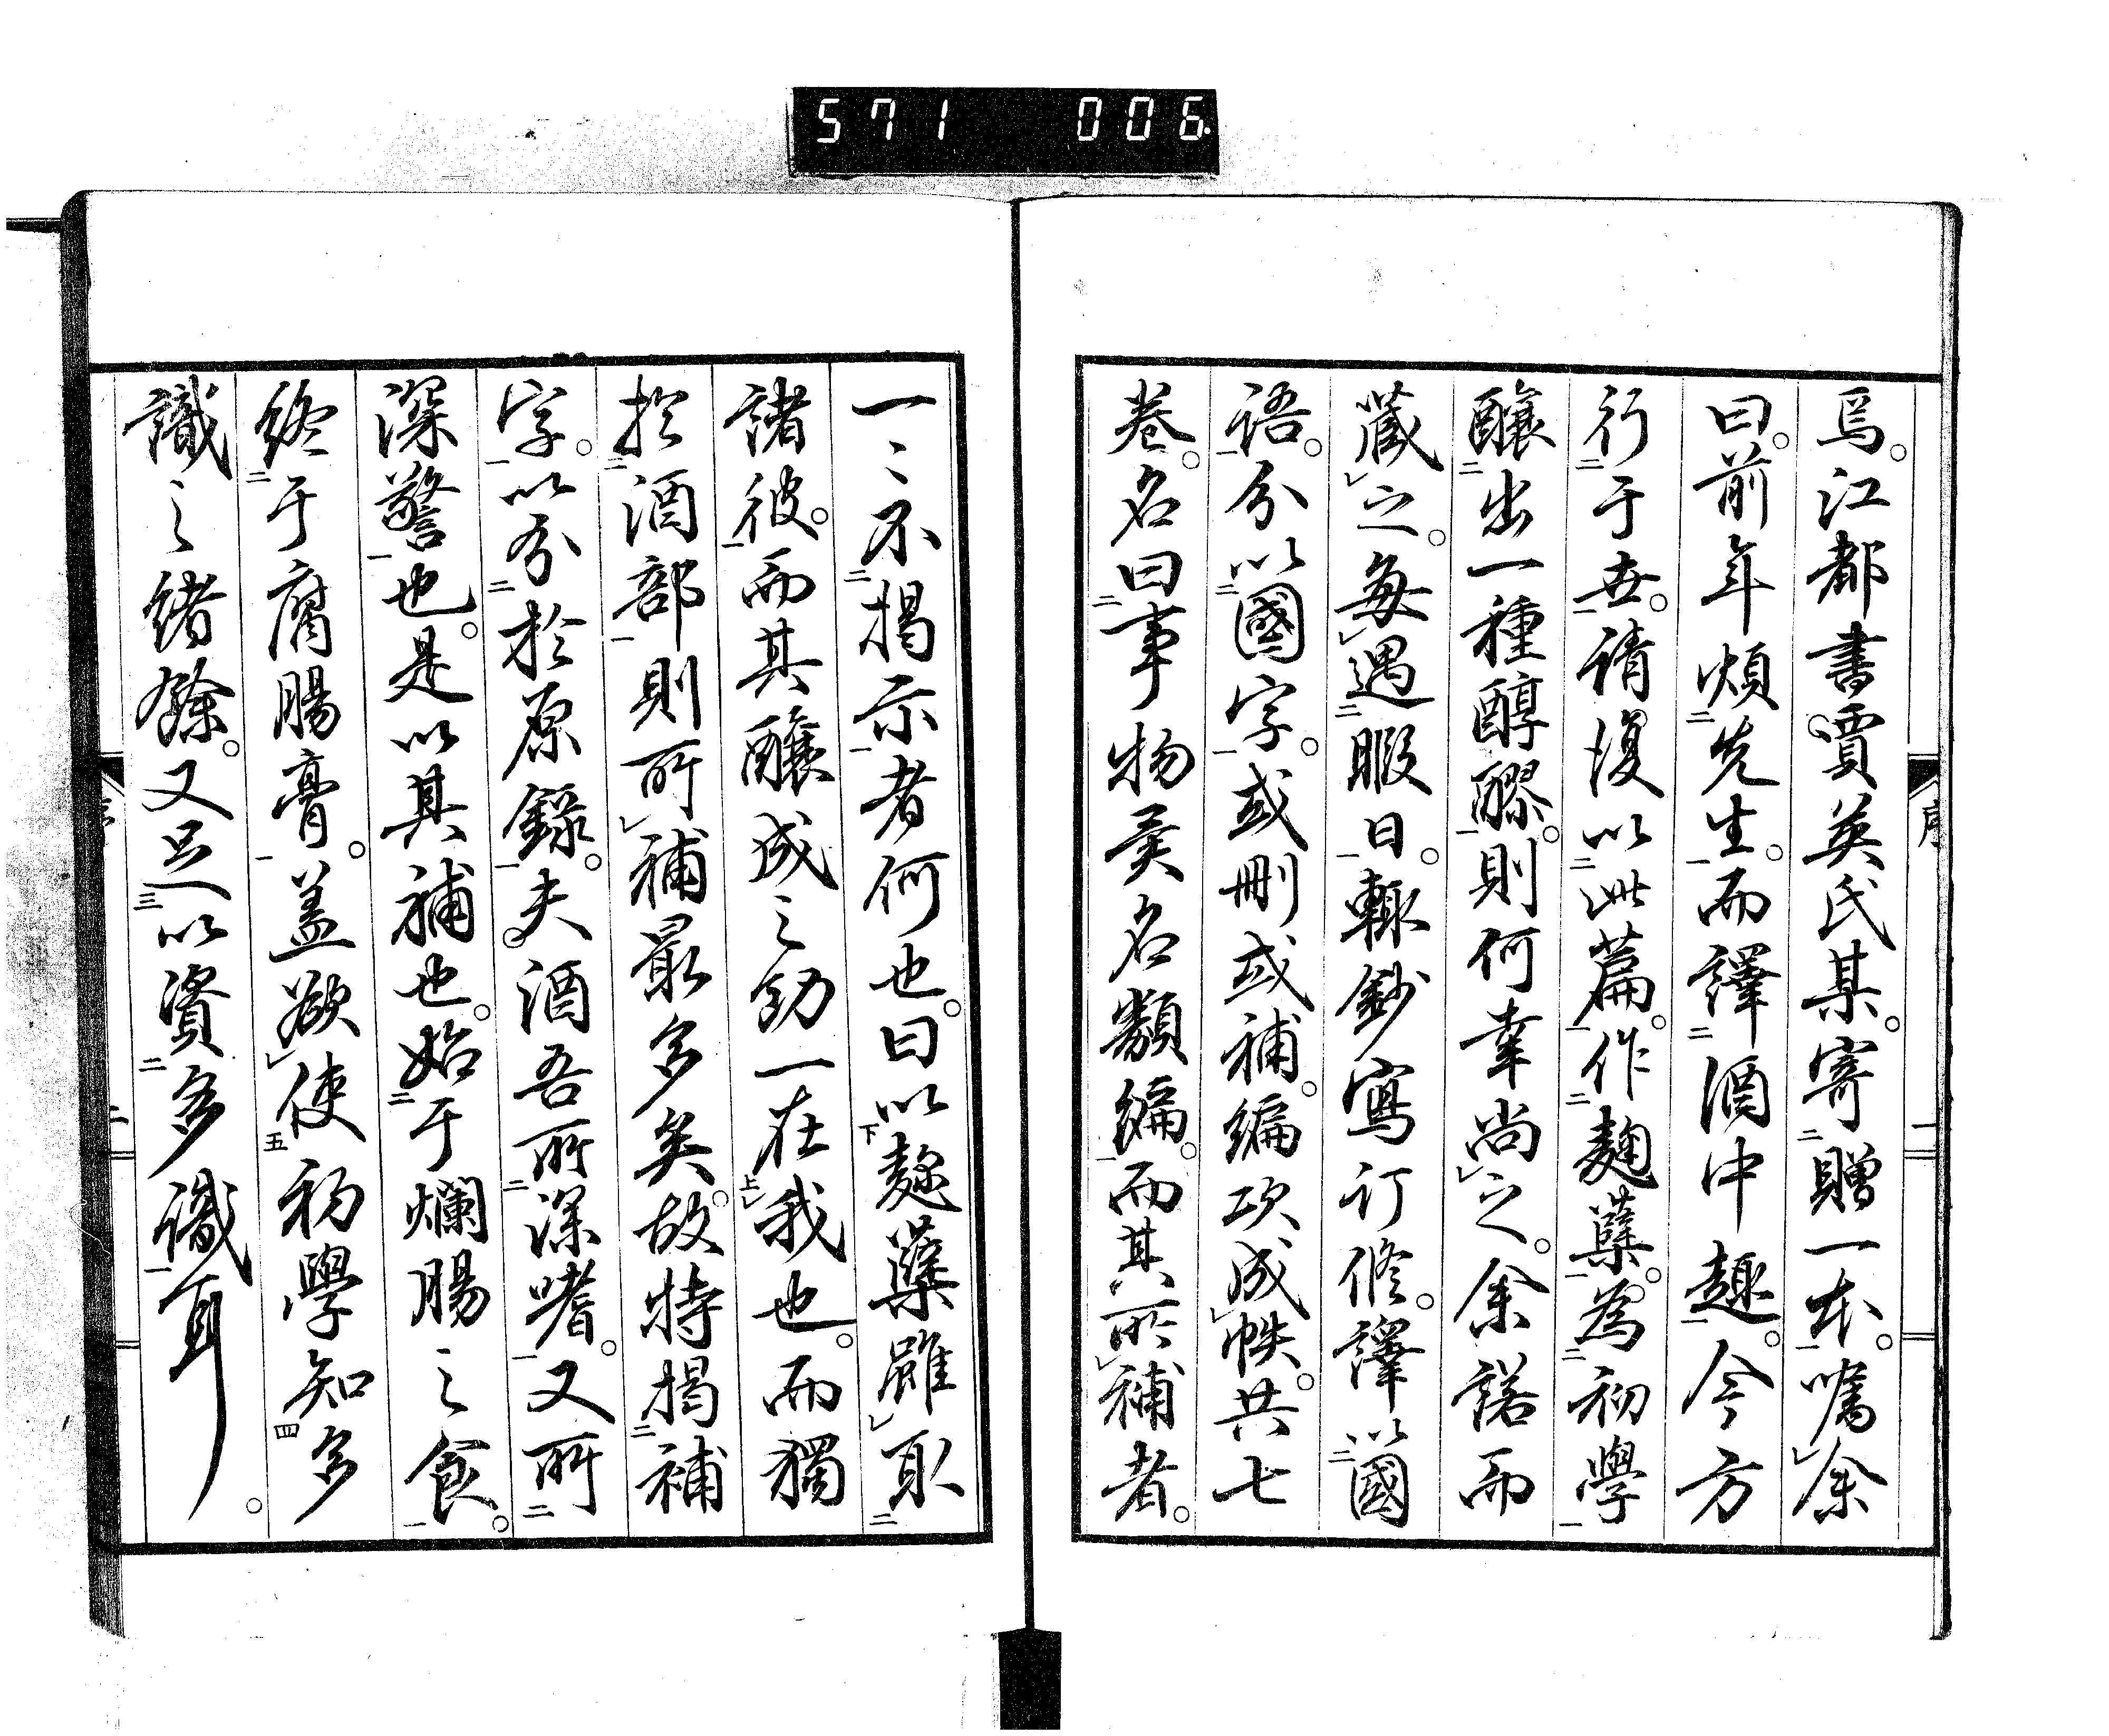 571 006
序
焉。江都書賈英氏某。寄贈一本。嘱余
曰。前年煩先生。而譯酒中趣。今方
行于世。請復以此篇。作麹糵。為初學
醸出一種醇醪。則何幸尚之。余諾而
蔵之。毎遇暇日。輙鈔寫訂脩。譯以國
語。分以國字。或刪或補。編次成帙。共七
巻。名曰事物異名類編。而其所補者。
一〻不揭示者何也。曰以麹糵雖取
諸彼。而其醸成之功一在我也。而獨
於酒部則所補最多矣。故特揭補
字。以分於原録。夫酒吾所深嗜。又所
深警也。是以其補也。始于爛腸之食。
終于腐腸膏。蓋欲使初學知多
識之緒餘。又足以資多識耳。
二